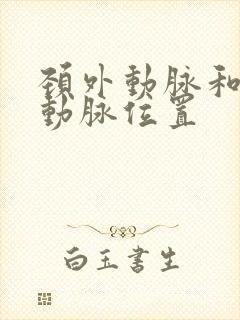 頚外動脉和
動脉位置
白玉書生